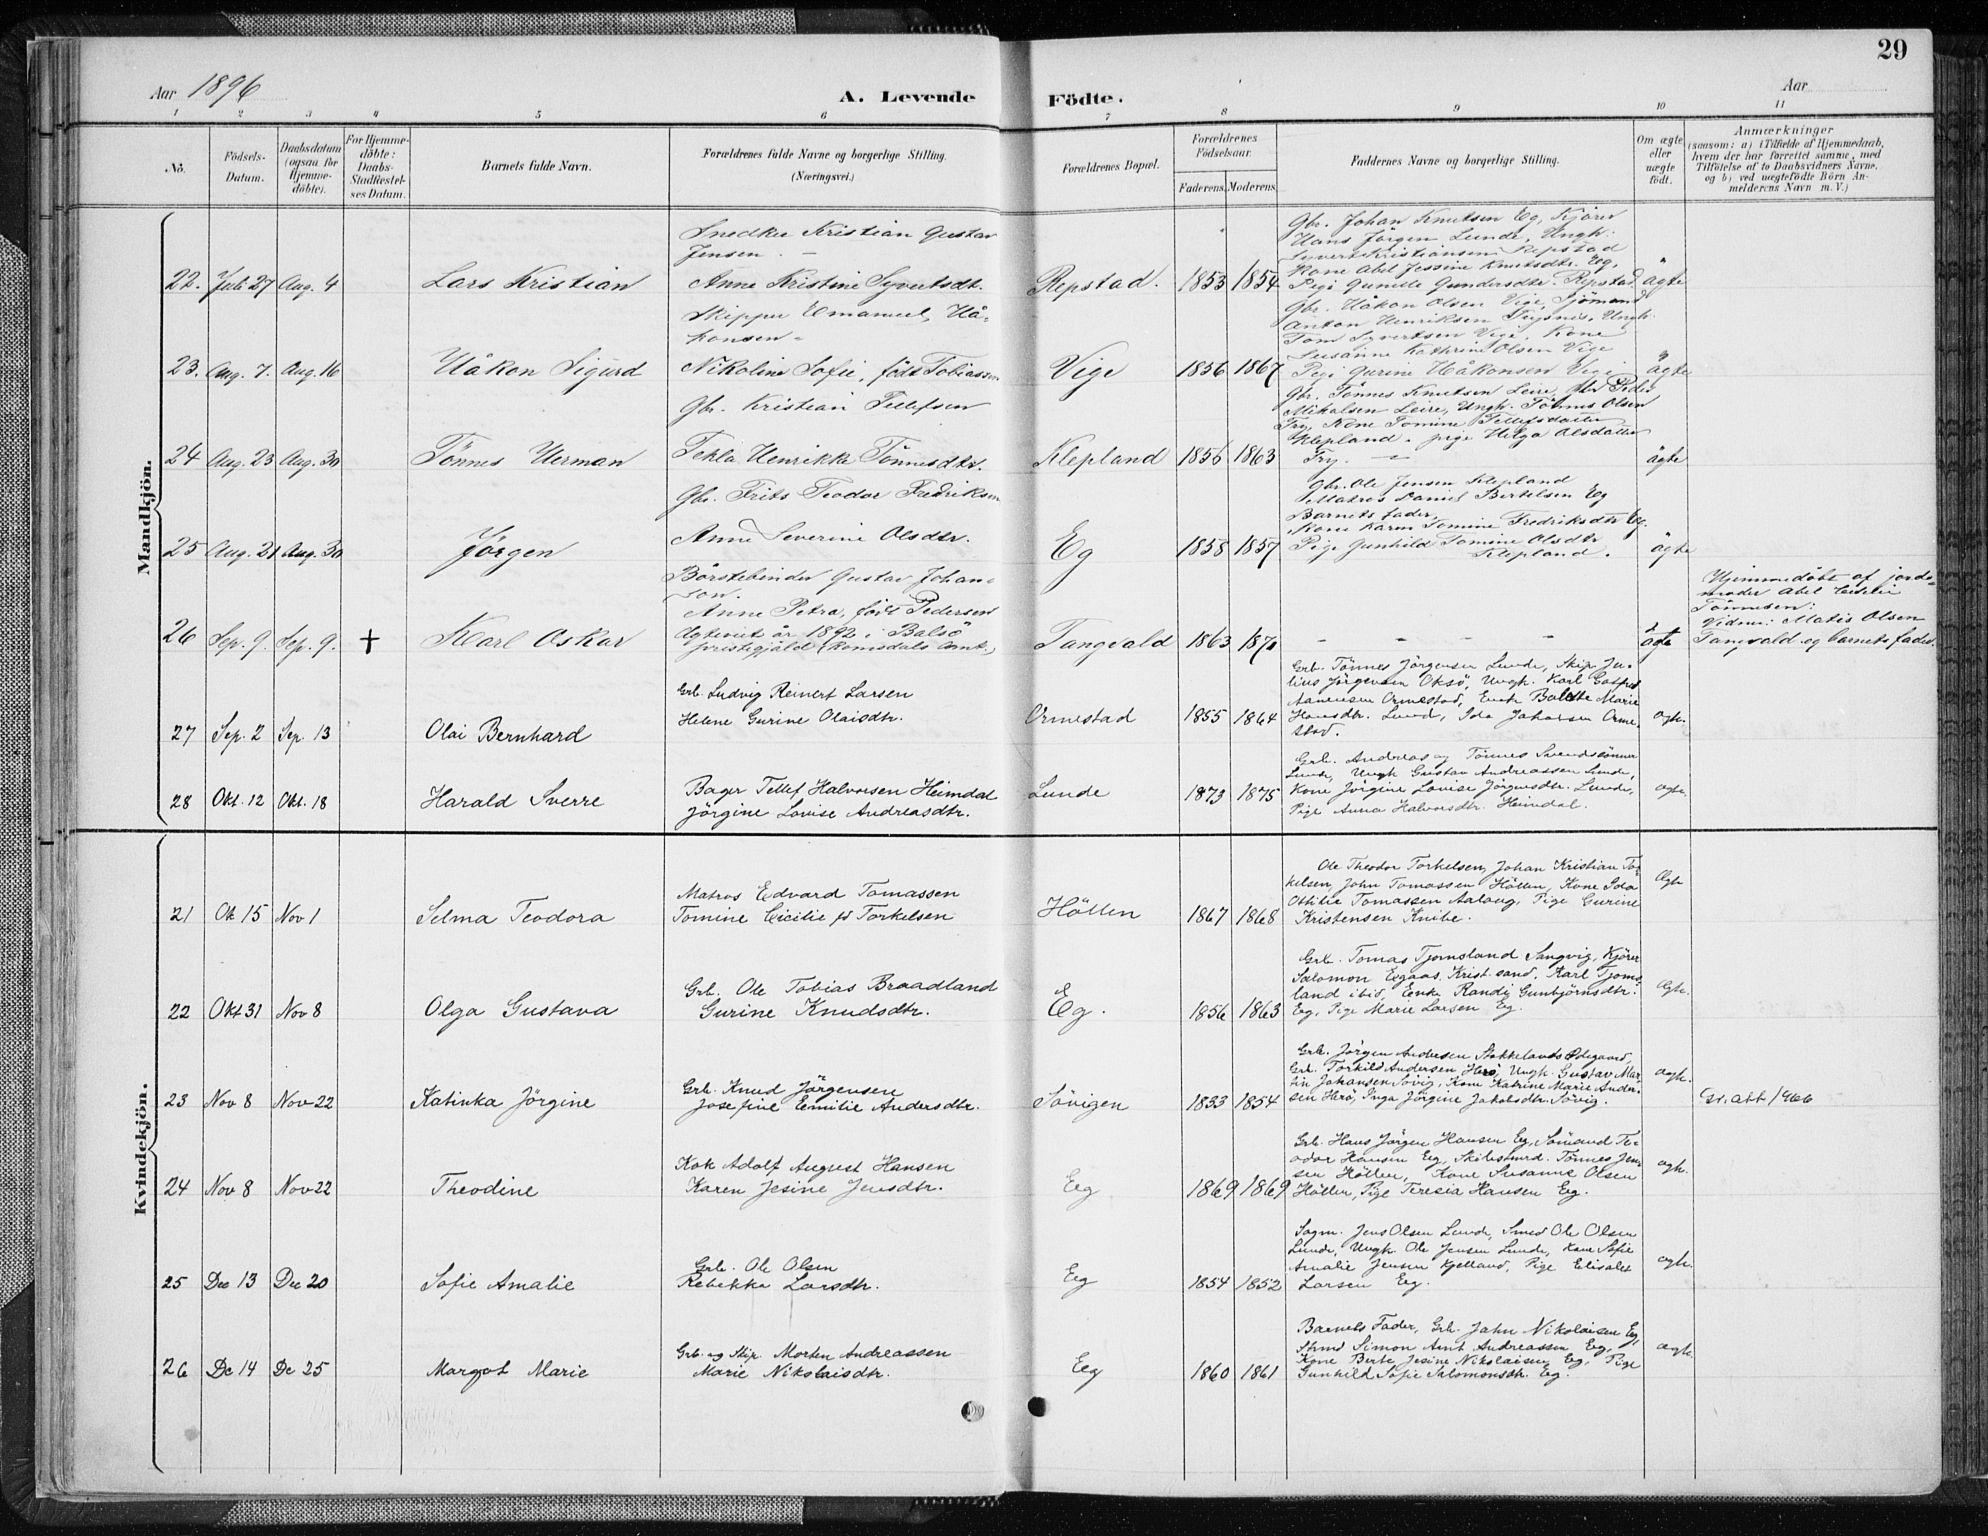 29
Aar 1896
A. Levende
Födte.
Aar
1 2 3 4 5 6 7 8 9 10 11
No.
Födsels-Datum.
Daabsdatum (ogsaa for Hjemme-döbte).
For Hjemme-döbte: Daabs-Stadfæstel-ses Datum.
Barnets fulde Navn.
Forældrenes fulde Navne og borgerlige Stilling.
(Næringsvei.)
Forældrenes Bopæl.
Forældrenes Födselsaar.
Faderens. Moderens.
Faddernes Navne og borgerlige Stilling.
Om ægte eller uægte födt.
Anmærkninger
(saasom: a) i Tilfælde af Hjemmedaab, hvem der har forrettet samme, med Tilföielse af to Daabsvidners Navne, og b) ved uægtefödte Börn Anmelderens Navn m. V.)
Mandkjön.
22. Juli 27 Aug. 4 Lars Kristian
Snedker Kristian Gustav
Jensen. –
Anne Kristine Syvertsdt.
Repstad. 1853 1854
Gbr. Johan Knutsen Eg, Kjörer
Hans Jörgen Lunde, Ungk.
Syvert Kristiansen Repstad
Kone Abel Jessine Knutsdtr. Eg,
Pige Gunille Gundersdtr. Repstad.
ägte
23. Aug. 7. Aug. 16 Håkon Sigurd
Skipper Emanuel Hå-
konsen –
Nikoline Sofie, födt Tobiassen
Vige 1856 1867
Gbr. Håkon Olsen Vige, Sjömand
Anton Henriksen, Ungk.
Tom Syvertsen Vige, Kone
Susanne Kathrine Olsen Vige
Pige Gurine Håkonsen Vige
ägte
24 Aug. 23 Aug. 30 Tönnes Herman
Gbr. Kristian Tellefsen
Tekla Henrikke Tönnesdtr.
Klepland 1856 1863
Gbr. Tönnes Knutsen Leire, Gbr Peder
Mikalsen Leire, Ungk. Tönnes Olsen
Try, Kone Tomine Tellefsdatter
Klepland. pige Helga Olsdatter
Try. –
ägte
25 Aug. 21 Aug. 30 Jörgen
Gbr. Frits Teodor Fredriksen
Anne Severine Olsdtr.
Eg 1858 1857
Gbr. Ole Jensen Klepland
Matros Daniel Bertelsen Eg
Barnets fader,
Kone Karen Tomine Fredriksdtr Eg.
Pige Gunhild Tomine Olsdtr
Klepland.
ägte
26 Sep. 9. Sep. 9. + Karl Oskar
Börstebinder Gustav Johan-
son.
Anne Petra, födt Pedersen
Ägteviet år 1892 i Balsö
prestegjäld (Romsdals Amt.)
Tangvald 1863 1870
– – – –
ägte
Hjemmedöbt af jorde-
moder Abel
Tönnesen:
Vidner: Matis Olsen
Tangvald og barnets fader.
27 Sep. 2 Sep. 13 Olai Bernhard
Grb. Ludvig Reinert Larsen
Helene Gurine Olaisdtr.
Ormestad 1855 1864
Grb. Tönnes Jörgensen Lunde, Skip. Ju-
lius Jörgensen Oksö, Ungk. Karl Gotfred
Aanensen Ormestad, Enke Bolette Marie
Hansdtr. Lund, Ida Johansen Orme-
stad.
agte.
28 Okt. 12 Okt. 18 Harald Sverre
Bager Tellef Halvorsen Heimdal
Jörgine Lovise Andreasdtr.
Lunde 1873 1875
Grb. Andreas og Tönnes Svendsönner
Lunde, Ungk Gustav Andreassen Lunde,
Kone Jörgine Lovise Jörgensdtr. Lunde,
Pige Anna Halvorsdtr. Heimdal.
agte.
Kvindekjön.
21 Ok 15 Nov 1 Selma Teodora
Matros Edvard Tomassen
Tomine Cicilie fd Torkelsen
Höllen 1867 1868
Ole Theodor Torkelsen, Johan Kristian Tor-
kelsen, John Tomassen Höllen, Kone Ida
Ottilie Tomassen Aaloug, Pige Gurine
Kristensen Knibe.
Ægte
22 Okt 31 Nov 8 Olga Gustava
Grb. Ole Tobias Braadland
Gurine Knudsdtr.
Eg. 1856 1863
Grb. Tomas Tjomsland Sangvig, Kjörer
Salomon Evgaas, Krist.sand, Karl Tjoms-
land ibid, Enke Randi Gunbjörnsdtr.
Eg, Pige Marie Larsen Eg.
Ægte.
23 Nov 8 Nov 22 Katinka Jörgine
Grb. Knud Jörgensen
Josefine Emilie Andersdtr.
Sövigen 1833 1854
Grb. Jörgen Andersen Stokkelands Ödegaard,
Grb. Torkild Andersen Herö, Ungk. Gustav Mar-
tin Johansen Sövig, Kone Katrine Marie Ander-
sen Herö, Inga Jörgine Jakobsdtr. Sövig.
agte.
Sv. att 1966
24 Nov 8 Nov 22 Theodine
Kok Adolf August Hansen
Karen Jesine Jensdtr.
Eeg 1869 1869
Grb. Hans Jörgen Hansen Eg, Sömand Te-
odor Hansen Eg, Skibstmrd. Tönnes Jen-
sen Höllen, Kone Susanne Olsen
Höllen, Pige Teresia Hansen Eg.
agte.
25 Dec 13 Dec 20 Sofie Amalie
Grb. Ole Olsen
Rebekka Larsdtr.
Eeg 1854 1852
Sagm. Jens Olsen Lunde, Smed Ole Olsen
Lunde, Ungk. Ole Jensen Lunde, Kone Sofie
Amalie Jensen Kjelland, Pige Elisabet
Larsen Eg.
agte.
26 De 14 De 25 Margot Marie
Grb. og Skip. Morten Andreassen
Marie Nikolaisdtr.
Eeg 1860 1861
Barnets Fader, Grb. Jahn Nikolaisen Eg,
Simon Arnt Andreassen Eg,
Kone Berte Jesine Nikolaisen Eg, Pige
Gunhild Sofie Salomonsdtr. Eg.
agte.